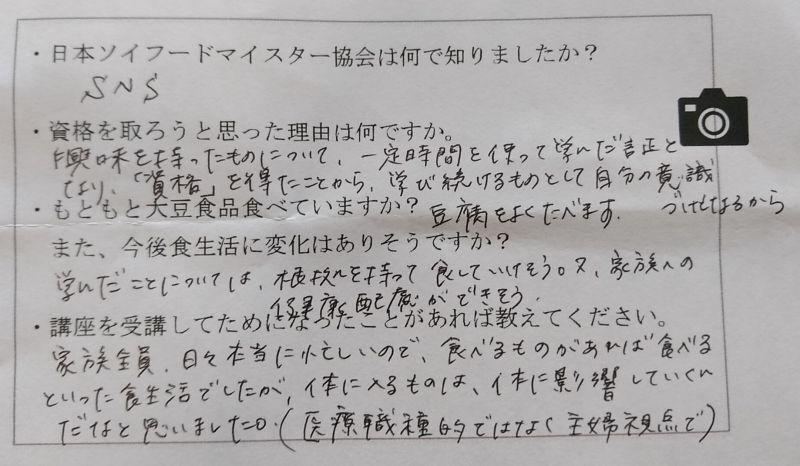 ・日本ソイフードマイスター協会は何で知りましたか？
SNS
・資格を取ろうと思った理由は何ですか。
興味を持ったものについて、一定時間を使って学んだ証と
なり、「資格」を得たことから、学び続けるものとして自分の意識
づけになるから
・もともと大豆食品食べていますか？ 豆腐をよくたべます。
また、今後食生活に変化はありそうですか？
学んだことについては、根拠を持って食していけそう。又、家族への
健康配慮ができそう。
・講座を受講してためになったことがあれば教えてください。
家族全員、日々本当に忙しいので、食べるものがあれば食べる
といった食生活でしたが、体に入るものは、体に影響していくん
だなと思いました。（医療職種的ではなく主婦視点で）